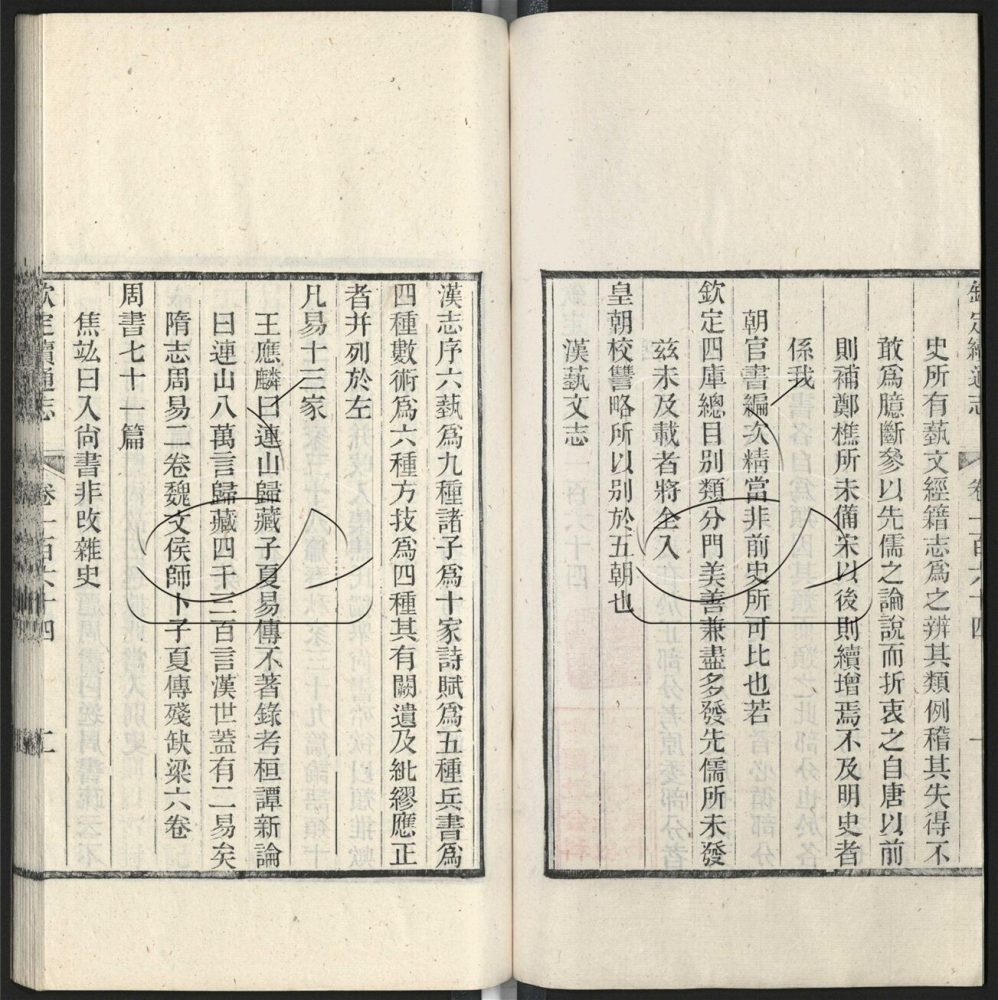 欽定續通志 卷一百六十四 一
史所有蓺文經籍志爲之辨其類例稽其失得不
敢爲臆斷參以先儒之論說而折衷之自唐以前
則補鄭樵所未備宋以後則續增焉不及明史者
係我
朝官書編次精當非前史所可比也若
欽定四庫總目別類分門美善兼盡多發先儒所未發
兹未及載者將全入
皇朝校讐略所以别於五朝也
漢蓺文志
漢志序六蓺爲九種諸子爲十家詩賦爲五種兵書爲
四種數術爲六種方技爲四種其有闕遺及紕繆應正
者并列於左
凡易十三家
王應麟曰連山歸藏子夏易傳不著錄考桓譚新論
曰連山八萬言歸藏四千三百言漢世蓋有二易矣
隋志周易二卷魏文侯師卜子夏傳殘缺梁六卷
周書七十一篇
焦竑曰入尚書非攺雜史
欽定續通志 卷一百六十四 二